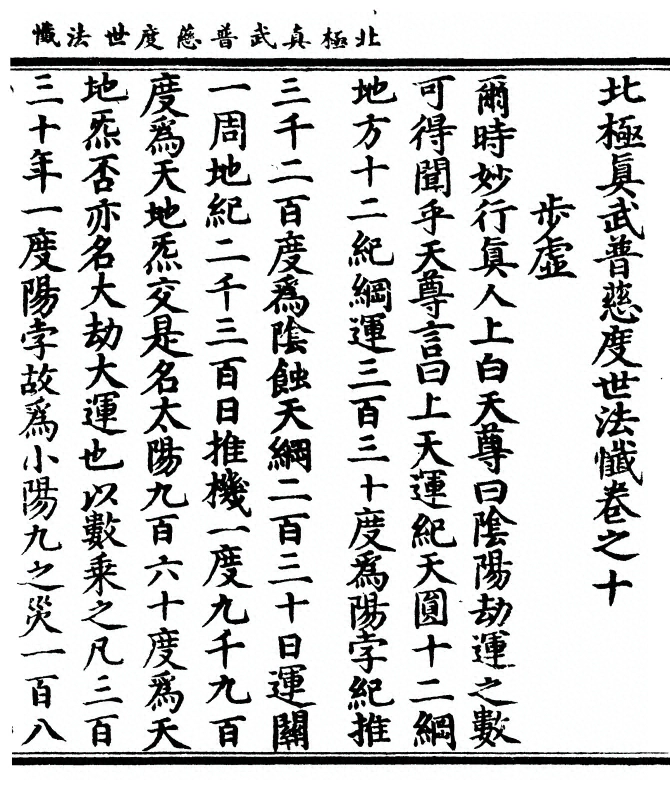 北極真武普慈度世法懺
北極真武普慈度世法懺卷之十
步虛
爾時妙行真人上白天尊曰陰陽劫運之數
可得聞乎天尊言曰上天運紀天圓十二綱
地方十二紀綱運三百三十度爲陽孛紀推
三千二百度爲陰蝕天綱二百三十日運關
一周地紀二千三百日推機一度九千九百
度爲天地炁交是名太陽九百六十度爲天
地炁否亦名大劫大運也以數乘之凡三百
三十年一度陽孛故爲小陽九之災一百八